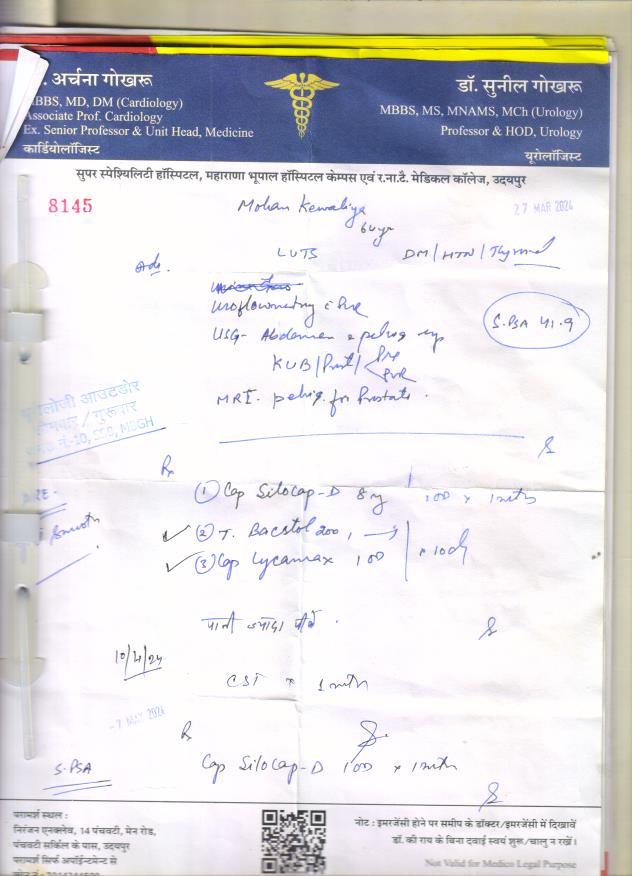 . अर्चना गोखरू
MBBS, MD, DM (Cardiology)
Associate Prof. Cardiology
Ex. Senior Professor & Unit Head, Medicine
कार्डियोलॉजिस्ट
डॉ. सुनील गोखरू
MBBS, MS, MNAMS, MCh (Urology)
Professor & HOD, Urology
यूरोलॉजिस्ट
सुपर स्पेश्यिलिटी हॉस्पिटल, महाराणा भूपाल हॉस्पिटल केम्पस एवं र.ना.टै. मेडिकल कॉलेज, उदयपुर
8145
Mohan Kewaliya
64yr
27 MAR 2024
Adv.
LUTS
DM/HTN/Thyroid
Uroflowmetry
USG- Abdomen pelvis
KUB/Prost/
Pre
PVR
S.PSA 41.9
MRI- pelvis for Prostate.
यूरोलॉजी आउटडोर
सोमवार / गुरूवार
Rx
(1) Cap Silocap-D 8mg 1OD x 1mth
(2) T. Bactol 200 1
(3) Cap Lycamax 1OD
x 10d
पानी ज्यादा पीवें.
10/4/24
CST x 1mth
-7 MAY 2024
Rx
S.PSA
Cap Silocap-D 1OD x 1mth
परामर्श स्थल :
निरंजन एनक्लेव, 14 पंचवटी, मेन रोड,
पंचवटी सर्किल के पास, उदयपुर
परामर्श सिर्फ अपॉईन्टमेन्ट से
नोट : इमरजेंसी होने पर समीप के डॉक्टर/इमरजेंसी में दिखावें
डॉ. की राय के बिना दवाई स्वयं शुरू/चालु न रखें।
Not Valid for Medico Legal Purpose